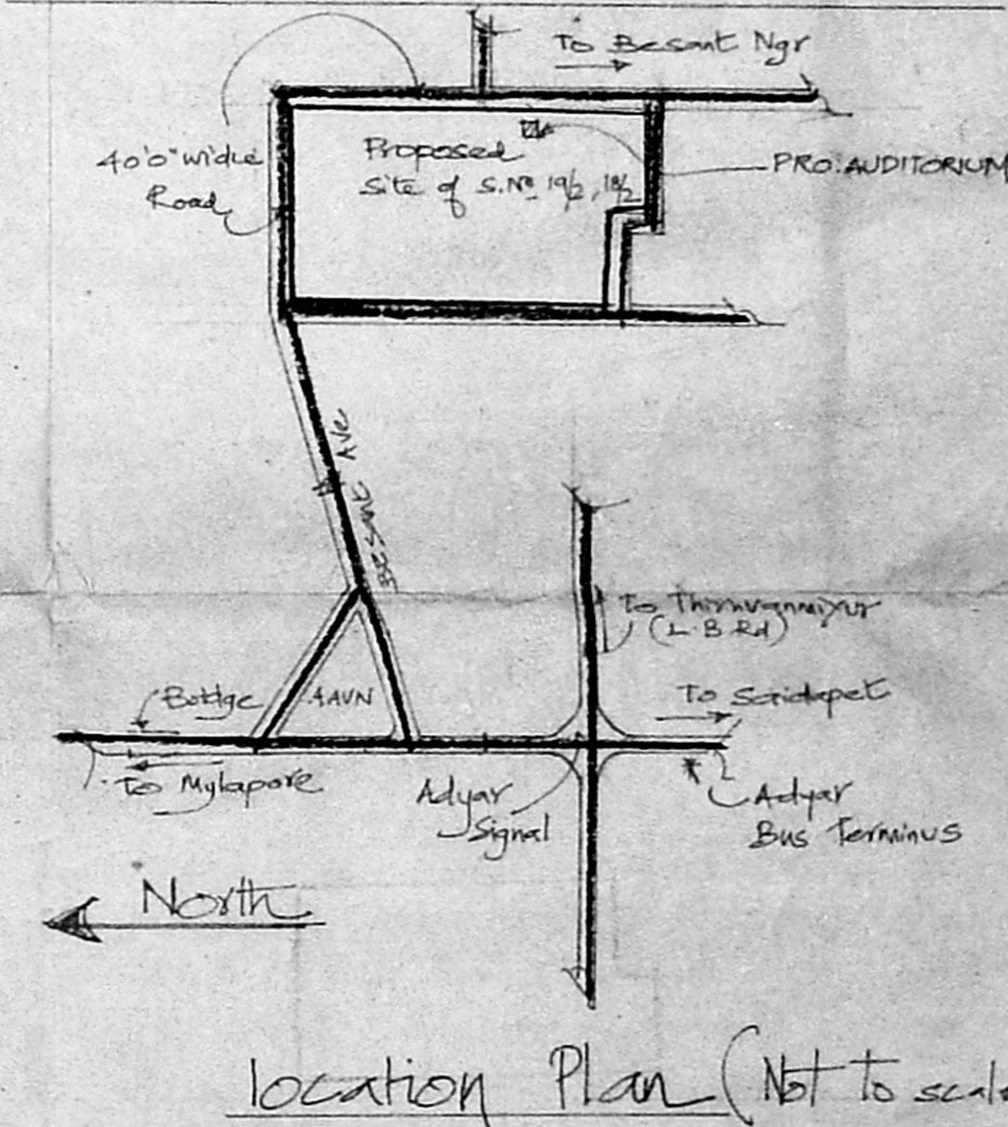 To Besant Ngr
40'0" wide
Road
Proposed
Site of S.No 19/2, 18/2
PRO. AUDITORIUM
BESANT AVE
To Thiruvanmiyur
(L.B Rd)
Bridge
AAVN
To Saidapet
To Mylapore
Adyar
Signal
Adyar
Bus Terminus
North
location Plan (Not to scale